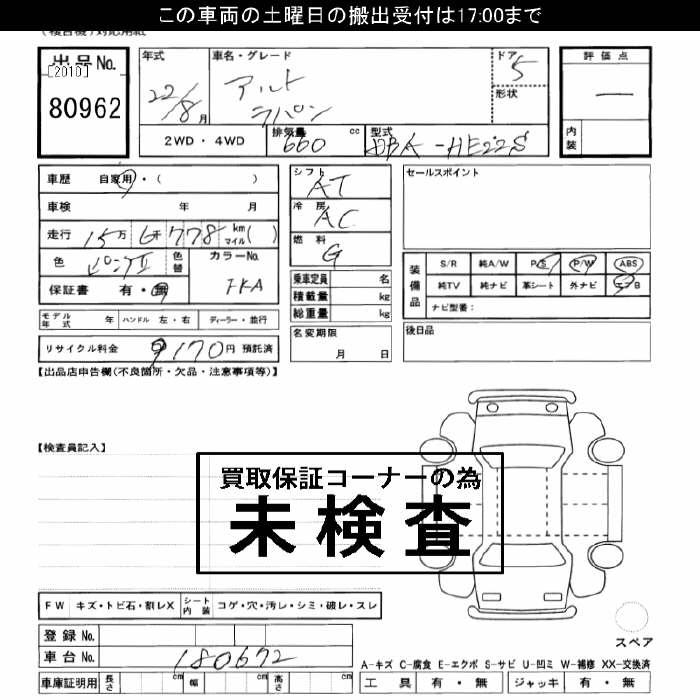 この車両の土曜日の搬出受付は17:00まで
(複合機)対応用紙
出品No.
[2010]
80962
年式
22/8月
車名・グレード
アルト
ラパン
ドア
5
形状
評価点
―
内装
2WD・4WD
排気量
660
cc
型式
DBA-HE22S
車歴 自家用・( )
車検 年 月
走行 15万6千778 km マイル( )
色 ピンクII 色替
カラーNo.
保証書 有・無
シフト
AT
冷房
AC
燃料
G
乗車定員 名
積載量 kg
総重量 kg
セールスポイント
装備品
S/R 純A/W P/S P/W ABS
純TV 純ナビ 革シート 外ナビ エアB
ナビ型番:
モデル年式 年 ハンドル 左・右 ディーラー・並行
名変期限
月 日
後日品
リサイクル料金 9170円 預託済
【出品店申告欄(不良箇所・欠品・注意事項等)】
【検査員記入】
買取保証コーナーの為
未検査
FW キズ・トビ石・割レX シート内装 コゲ・穴・汚レ・シミ・破レ・スレ
登録No.
車台No. 180672
車庫証明用 長さ cm 幅 cm 高さ cm
スペア
A-キズ C-腐食 E-エクボ S-サビ U-凹ミ W-補修 XX-交換済
工具 有・無 ジャッキ 有・無